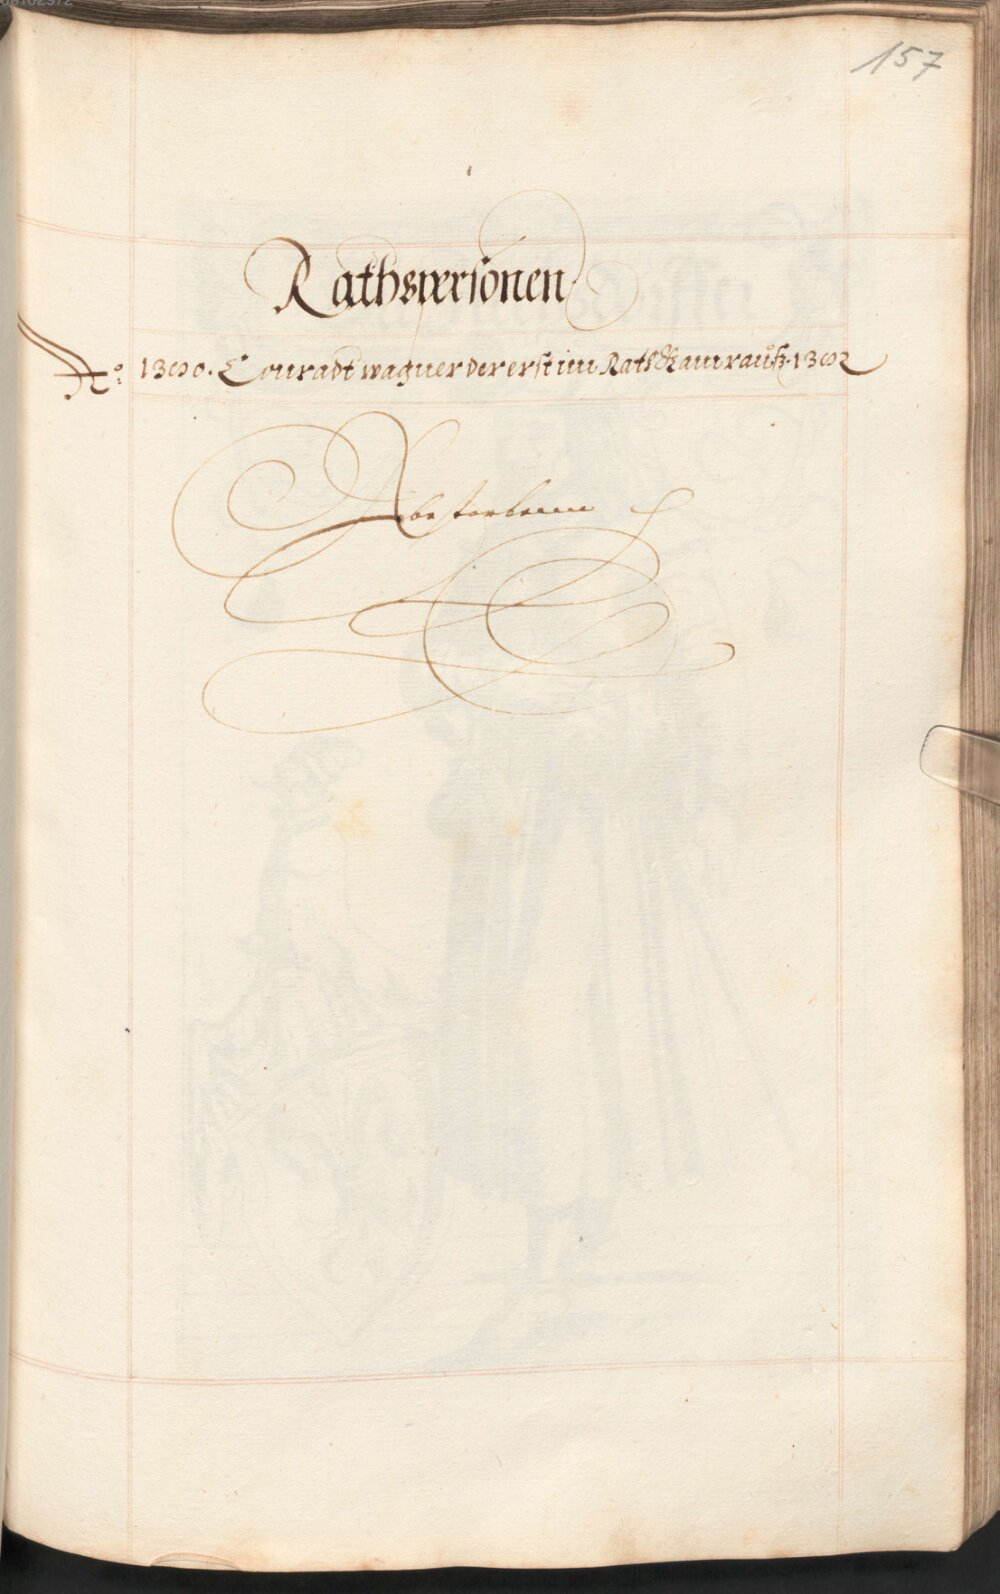 157
Rathspersonen
Ao: 1390. Conradt wagner der erst im Rath kam rauß 1392
Abestorbenn